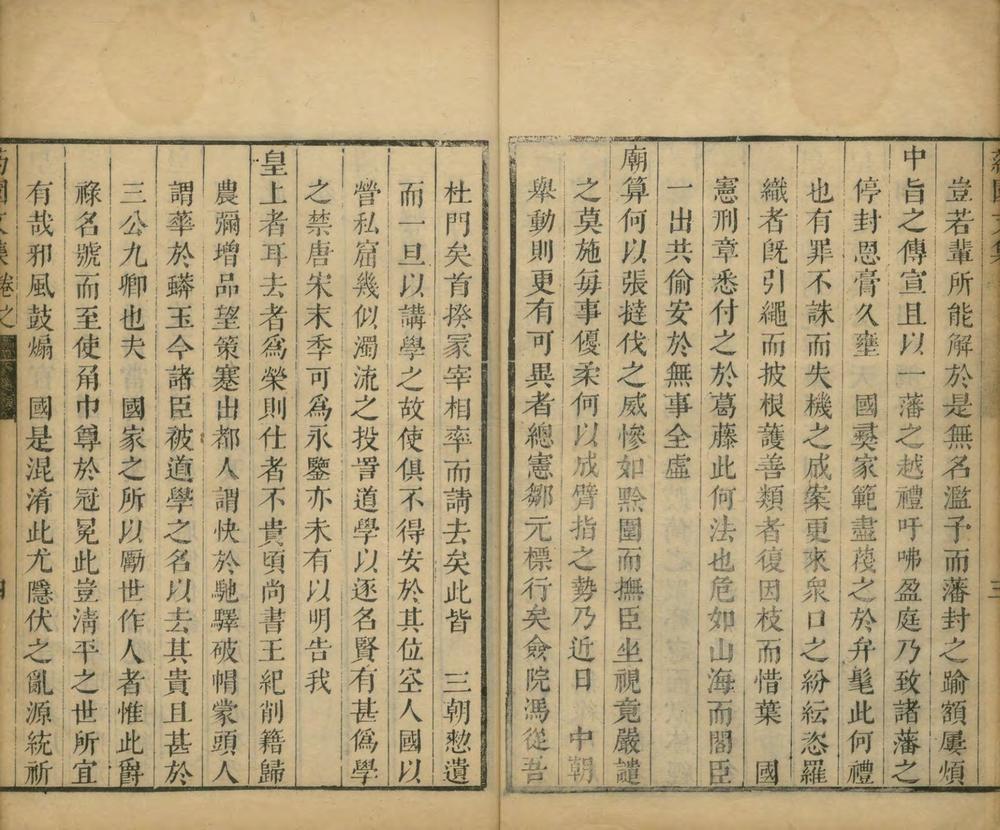 豈若輩所能解於是無名濫予而藩封之踰額屢煩
中旨之傳宣且以一藩之越禮吁咈盈庭乃致諸藩之
停封恩膏久壅　國彝家範盡蔑之於弁髦此何禮
也有罪不誅而失機之成案更來衆口之紛紜恣羅
織者旣引繩而披根護善類者復因枝而惜葉　國
憲刑章悉付之於葛藤此何法也危如山海而閣臣
一出共偷安於無事全虛
廟算何以張撻伐之威慘如黔圍而撫臣坐視竟嚴譴
之莫施每事優柔何以成臂指之勢乃近日　中朝
舉動則更有可異者總憲鄒元標行矣僉院馮從吾
杜門矣首揆冢宰相率而請去矣此皆　三朝憖遺
而一旦以講學之故使俱不得安於其位空人國以
營私窟幾似濁流之投詈道學以逐名賢有甚僞學
之禁唐宋末季可爲永鑒亦未有以明告我
皇上者耳去者爲榮則仕者不貴頃尚書王紀削籍歸
農彌增品望策蹇出都人謂快於馳驛破帽蒙頭人
謂華於蟒玉今諸臣被道學之名以去其貴且甚於
三公九卿也夫　國家之所以勵世作人者惟此爵
祿名號而至使角巾尊於冠冕此豈淸平之世所宜
有哉邪風鼓煽　國是混淆此尤隱伏之亂源統祈
文集卷之
四